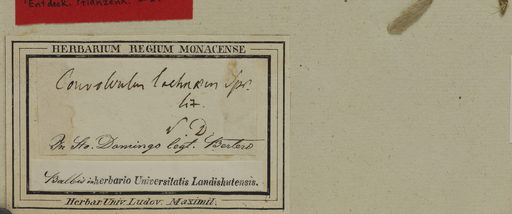 Entdeck. Pflanzenk.
HERBARIUM REGIUM MONACENSE
Convolvulus Spr.
litt.
N. D.
In Sto. Domingo legt. Bertero
Balbis in herbario Universitatis Landishutensis.
Herbar Univ. Ludov. Maximil.